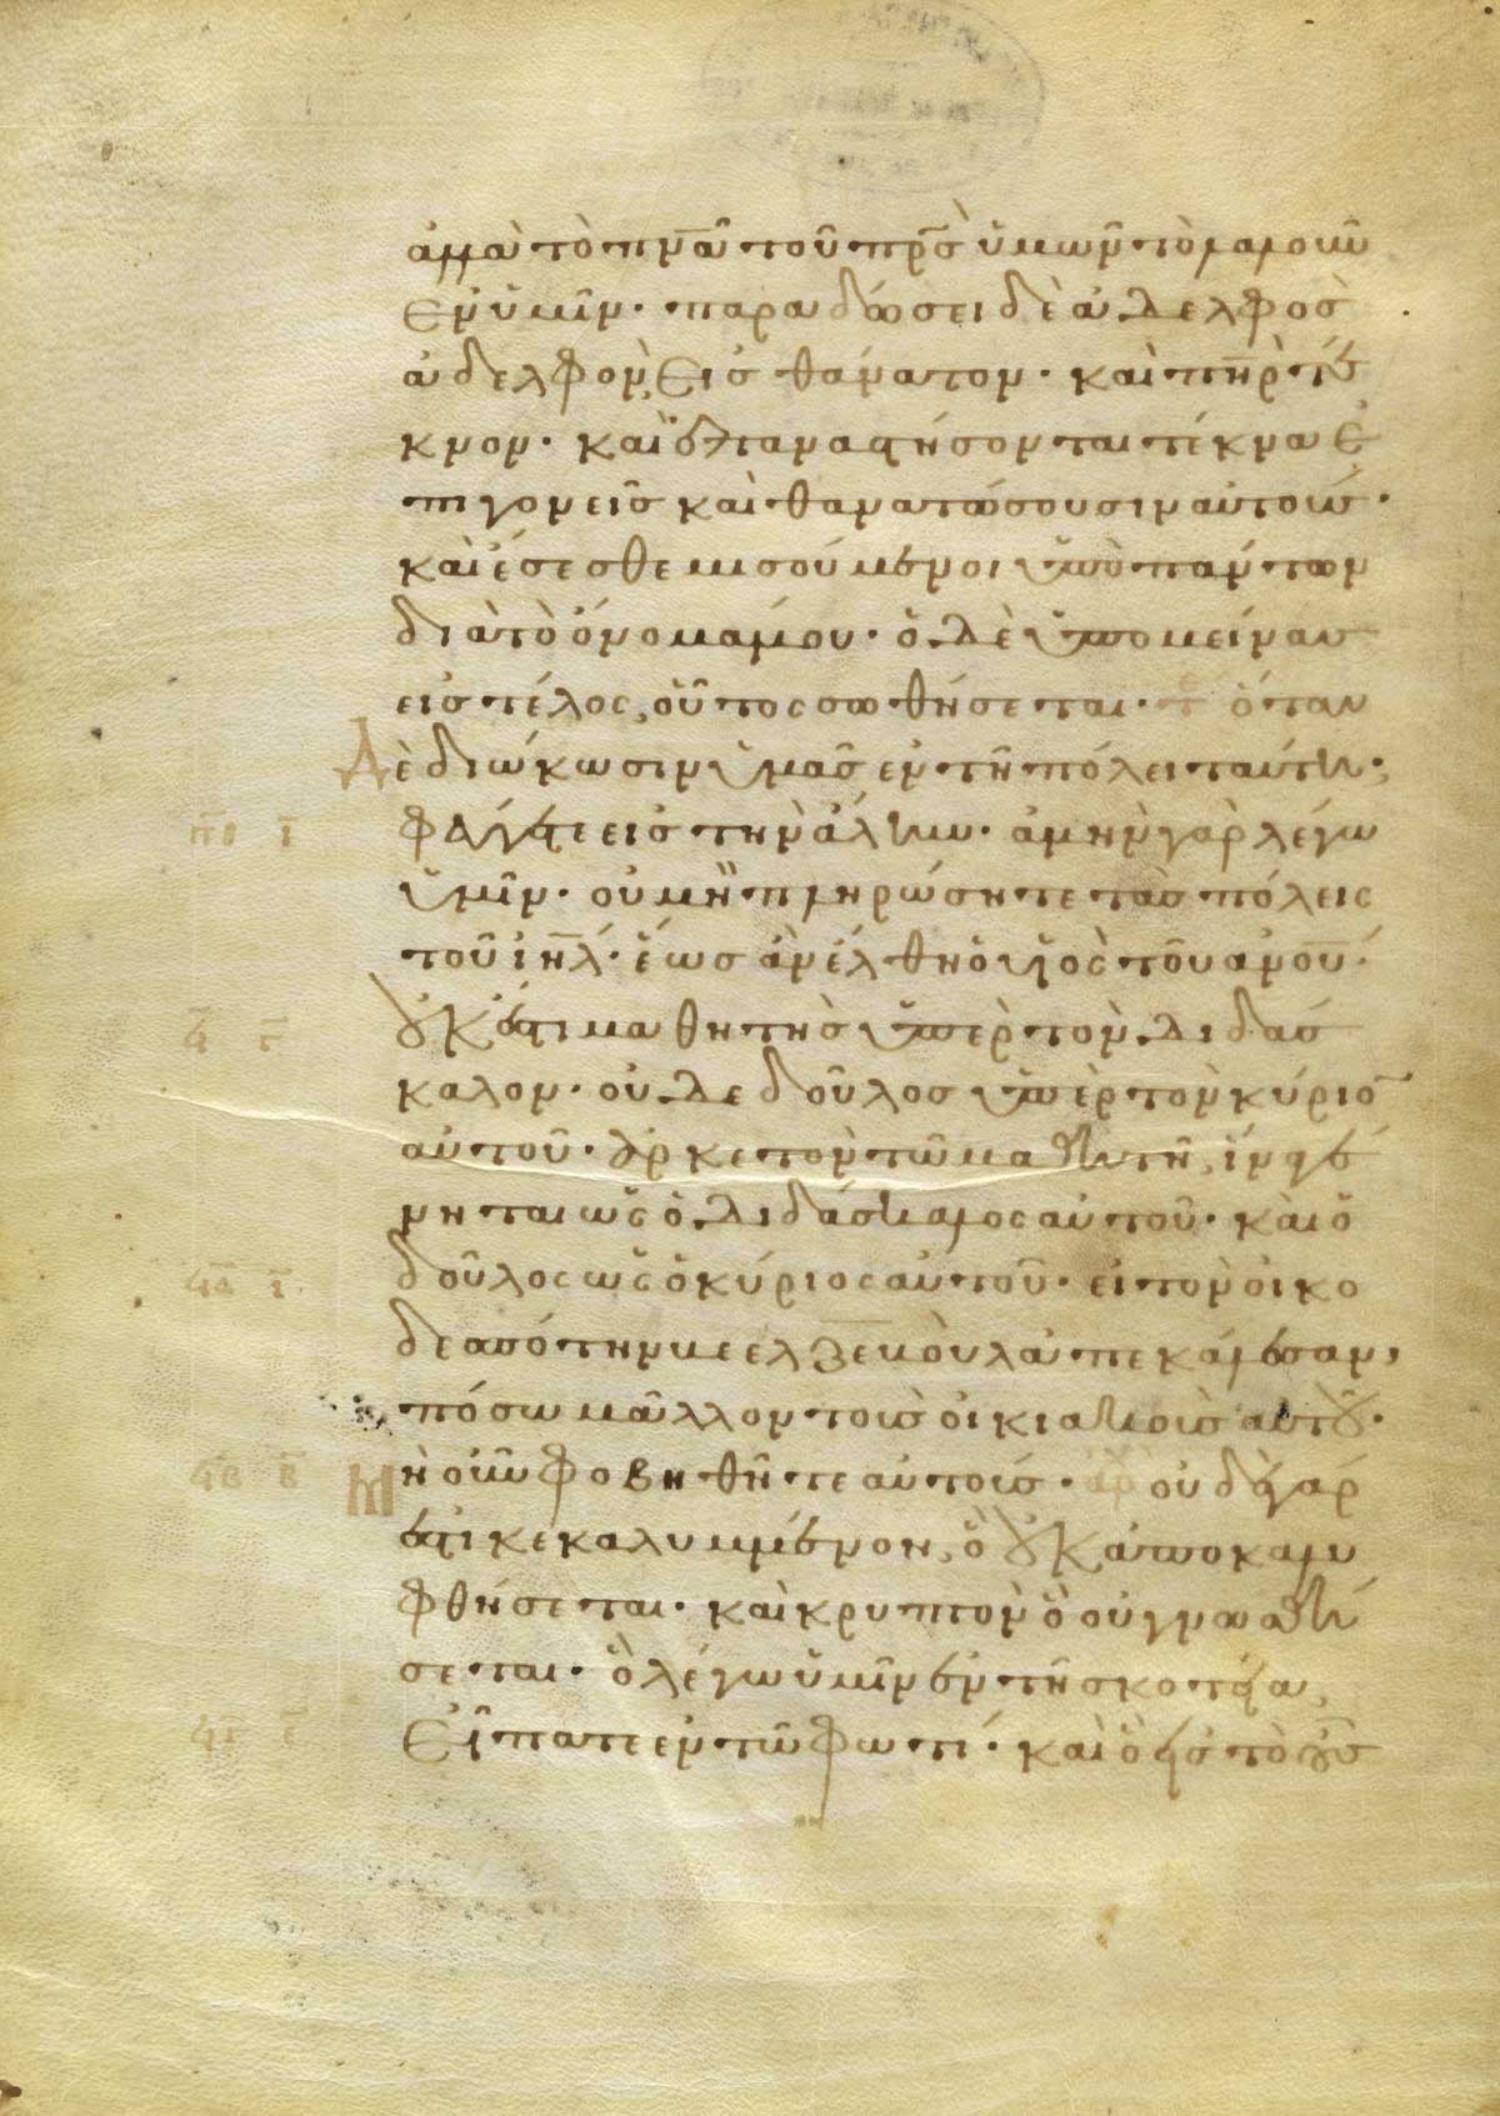 ἀλλὰ τὸ πν̅α̅ τοῦ πρ̅σ̅ ὑμῶν τὸ λαλοῦν
ἐν ὑμῖν· παραδώσει δὲ ἀδελφὸσ
ἀδελφὸν εἰσ θάνατον· καὶ πη̅ρ̅ τέ
κνον· καὶ ἐπαναστήσονται τέκνα ἐ
πι γονεῖσ καὶ θανατώσουσιν αὐτούσ·
καὶ ἔσεσθε μισούμενοι ὑπὸ πάντων
διὰ τὸ ὄνομά μου· ὁ δὲ ὑπομείνασ
εἰσ τέλος, οὗτος σωθήσεται· ὅταν
Δὲ διώκωσιν ὑμᾶσ ἐν τῆ πόλει ταύτη·
φεύγετε εἰσ τὴν ἄλλην· ἀμὴν γὰρ λέγω
πθ ι
ὑμῖν· οὐ μὴ πληρώσητε τὰσ πόλεις
τοῦ ἰη̅λ̅· ἕωσ ἂν ἔλθη ὁ υἱὸς τοῦ ἀν̅ο̅υ̅·
οὐκ ἔστι μαθητὴσ ὑπὲρ τὸν διδάσ
ϟ γ
καλον· οὐδὲ δοῦλοσ ὑπὲρ τὸν κύριο̅
αὐτοῦ· ἀρκετὸν τῶ μαθητῆ, ἵνα γέ
νηται ὡς ὁ διδάσκαλος αὐτοῦ· καὶ ὁ
δοῦλος ὡς ὁ κύριος αὐτοῦ· εἰ τὸν οἰκο
ϟα ι
δεσπότην βεελζεβοὺλ ἀπεκάλεσαν,
πόσω μᾶλλον τοὺσ οἰκιακοὺσ αὐτοῦ·
Μὴ οὖν φοβηθῆτε αὐτούσ· οὐδὲν γάρ
ϟβ β
ἐστι κεκαλυμμένον, ὃ οὐκ ἀποκαλυ
φθήσεται· καὶ κρυπτὸν ὃ οὐ γνωσθή
σεται· ὃ λέγω ὑμῖν ἐν τῆ σκοτεία,
εἴπατε ἐν τῶ φωτί· καὶ ὃ εἰσ τὸ οὖσ
ϟγ ε